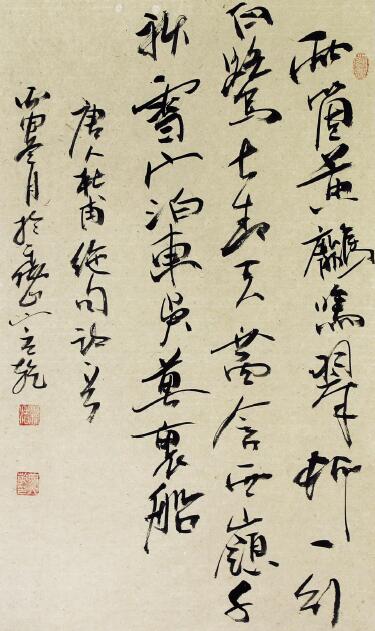 兩箇黃鸝鳴翠柳一行
白鷺上青天窗含西嶺千
秋雪門泊東吳萬裏船
唐人杜甫絕句詩
月於